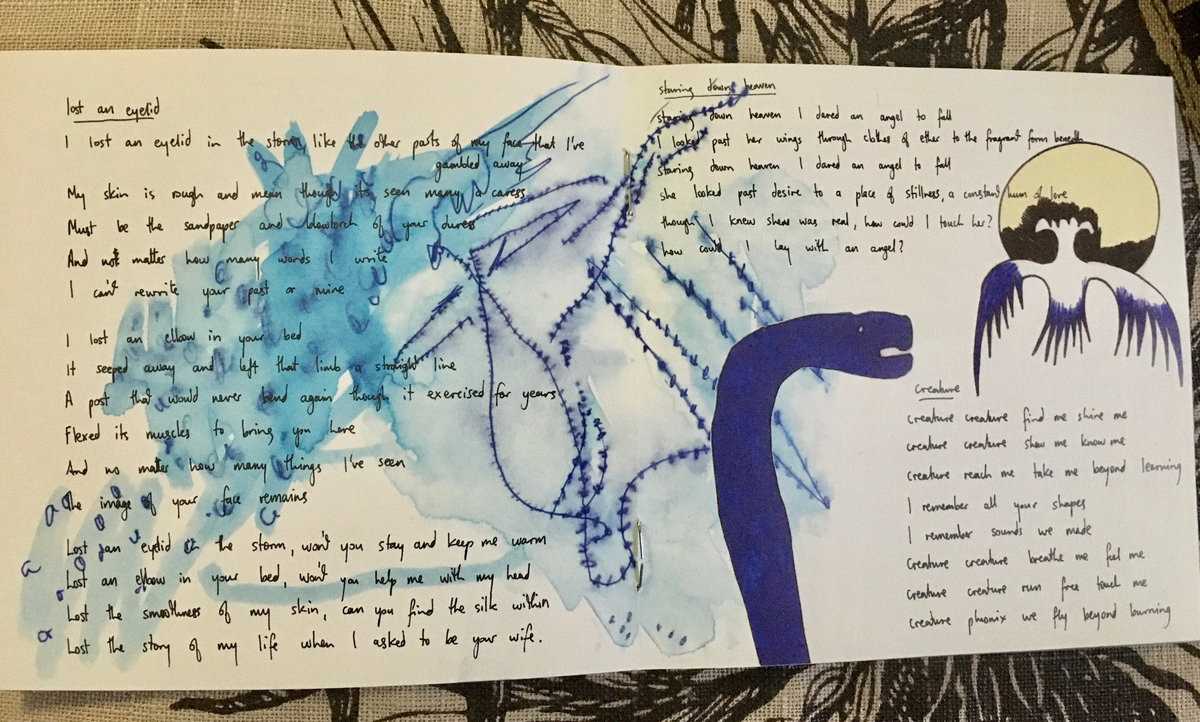 lost an eyelid
I lost an eyelid in the storm, like the other parts of my face that I've
gambled away
My skin is rough and mean though it's seen many a caress
Must be the sandpaper and blowtorch of your duress
And not matter how many words I write
I can't rewrite your past or mine
I lost an elbow in your bed
It seeped away and left that limb a straight line
A post that would never bend again though it exercised for years
Flexed its muscles to bring you here
And no matter how many things I've seen
The image of your face remains
Lost an eyelid in the storm, won't you stay and keep me warm
Lost an elbow in your bed, won't you help me with my head
Lost the smoothness of my skin, can you find the silk within
Lost the story of my life when I asked to be your wife.
staring down heaven
staring down heaven I dared an angel to fall
I looked past her wings through clothes of ether to the fragrant form beneath
staring down heaven I dared an angel to fall
she looked past desire to a place of stillness, a constant hum of love
though I knew she was real, how could I touch her?
how could I lay with an angel?
creature
creature creature find me shine me
creature creature show me know me
creature reach me take me beyond learning
I remember all your shapes
I remember sounds we made
creature creature breathe me feel me
creature creature run free touch me
creature pheonix we fly beyond burning